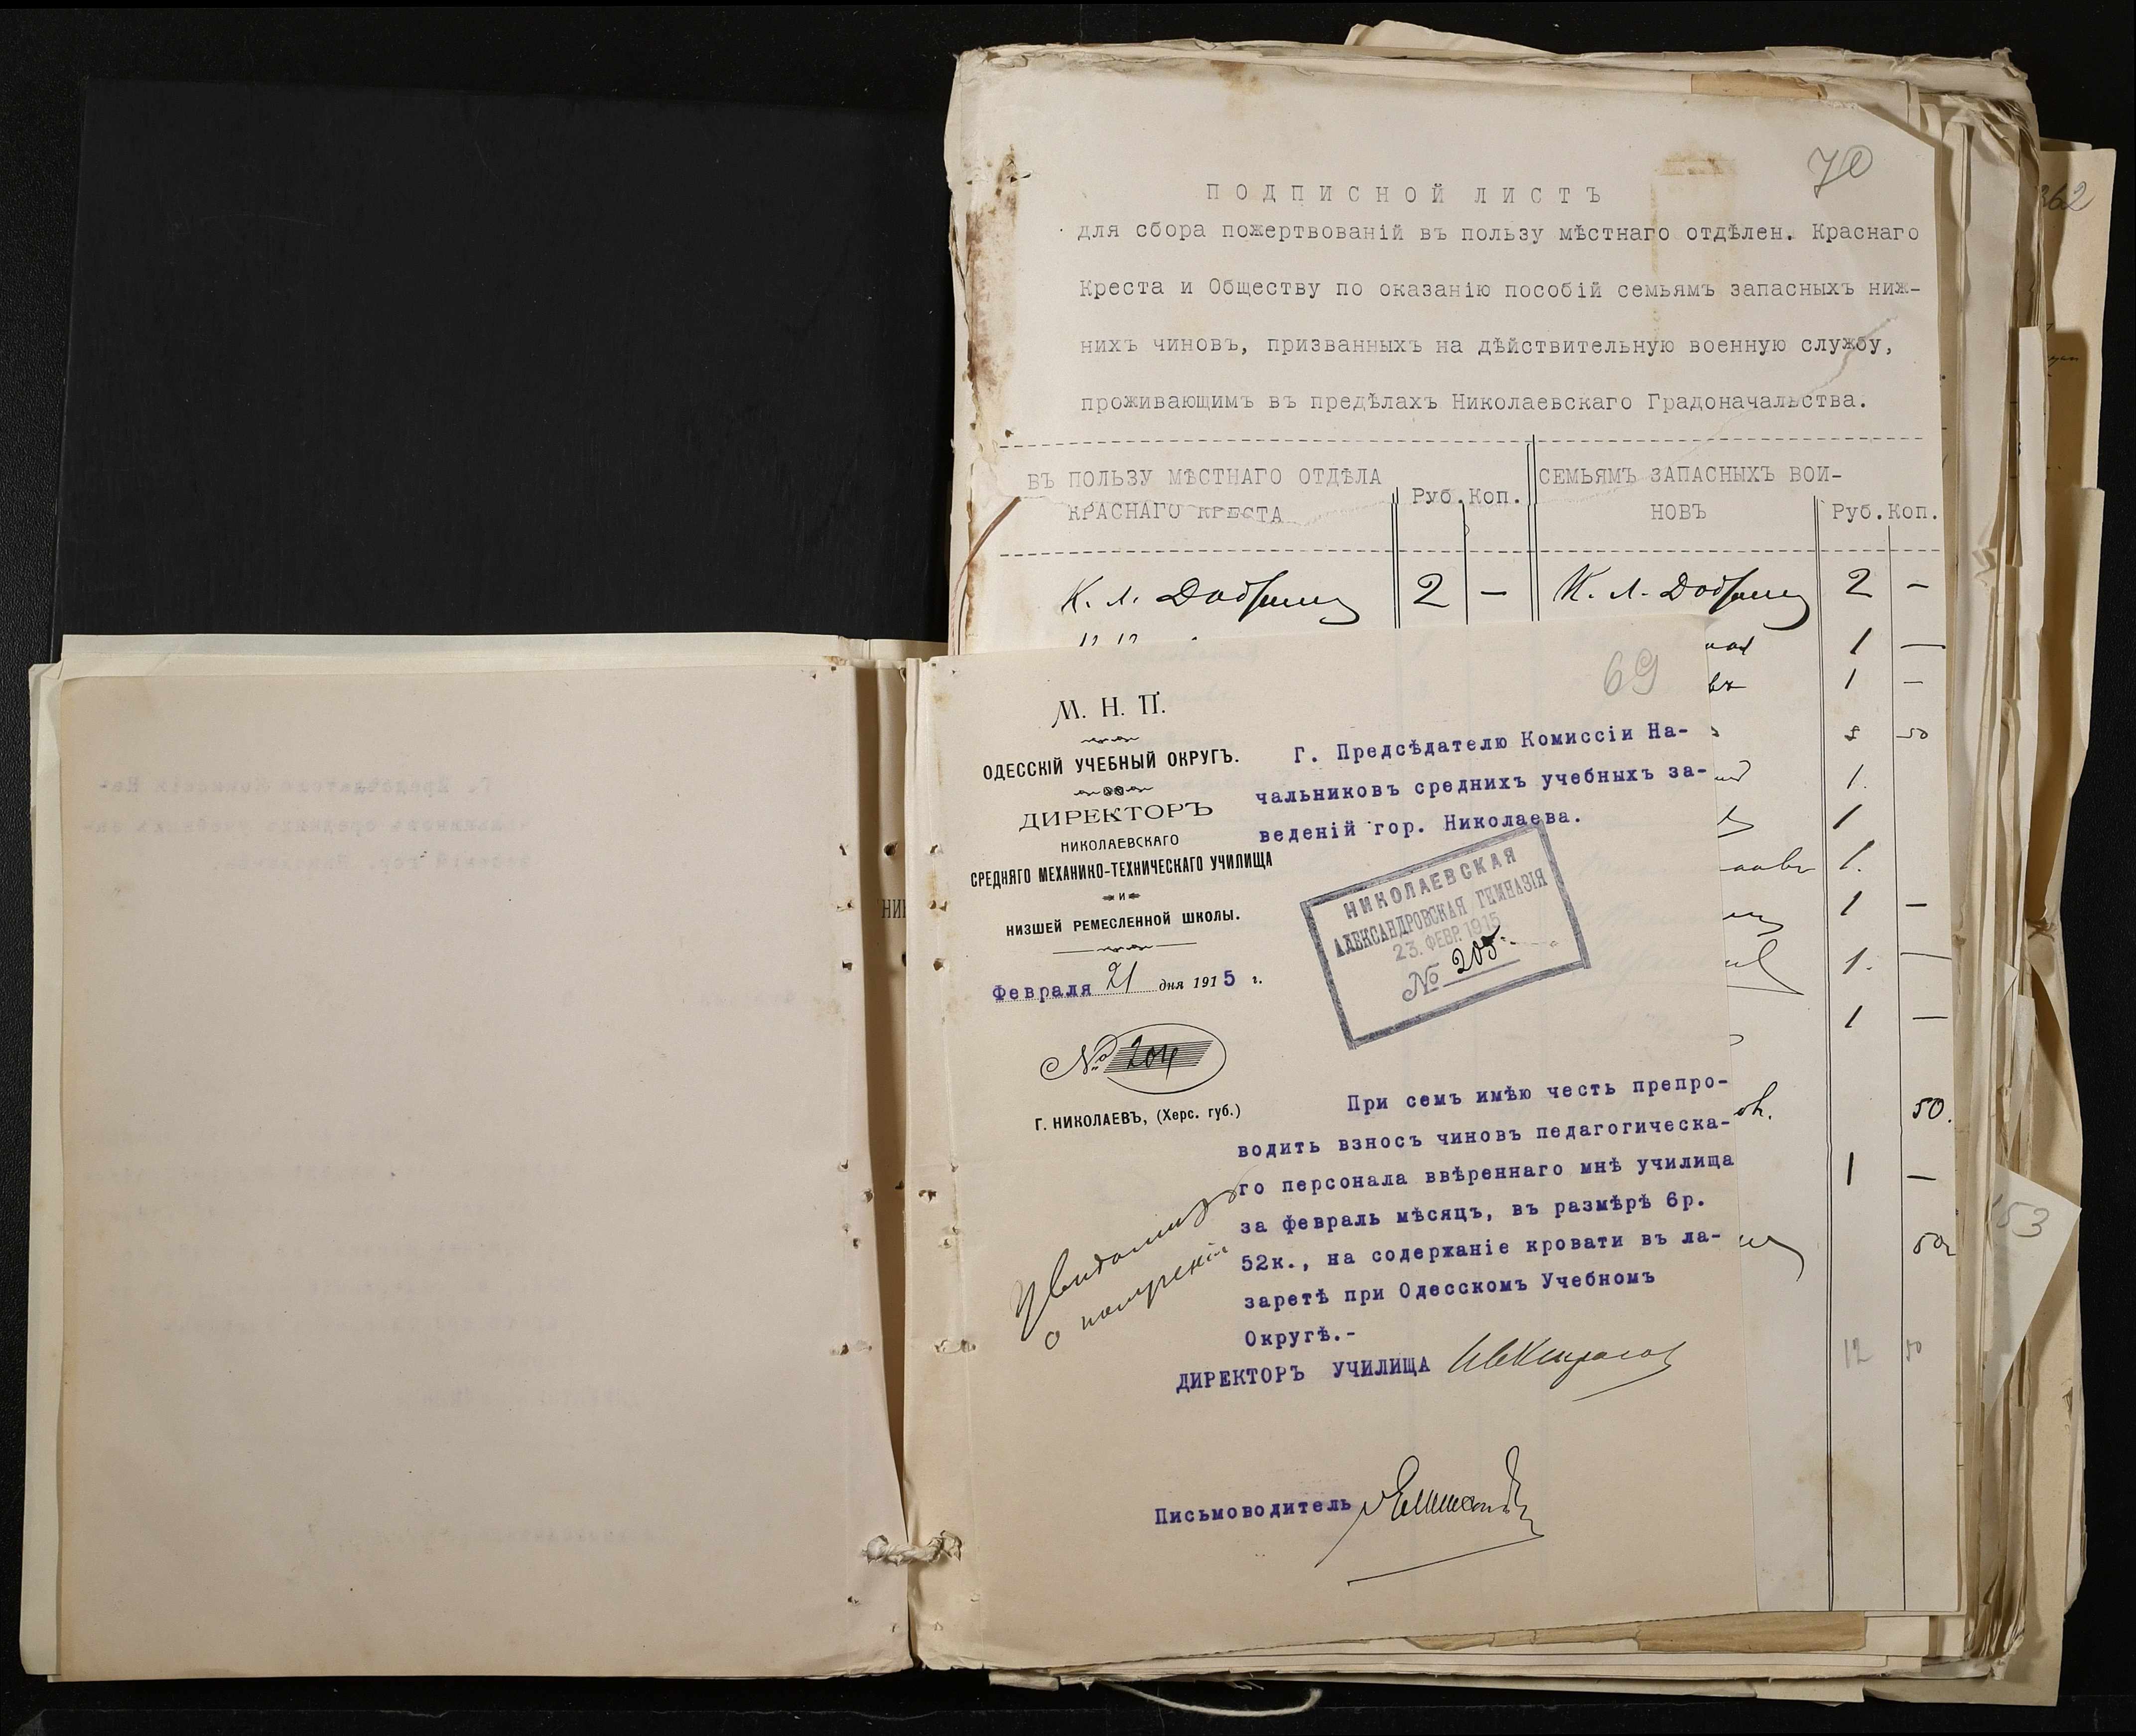 70
ПОДПИСНОЙ ЛИСТЪ
для сбора пожертвованій въ пользу мѣстнаго отдѣлен. Краснаго
Креста и Обществу по оказанію пособій семьямъ запасныхъ ниж-
нихъ чиновъ, призванныхъ на дѣйствительную военную службу,
проживающимъ въ предѣлахъ Николаевскаго Градоначальства.
ВЪ ПОЛЬЗУ МѢСТНАГО ОТДѢЛА
КРАСНАГО КРЕСТА
Руб. Коп.
СЕМЬЯМЪ ЗАПАСНЫХЪ ВОИ-
НОВЪ
Руб. Коп.
К. Л. 2 — К. Л. 2 —
1 —
1 —
50
1.
1
1.
1 —
1. —
1 —
50.
1 —
50
12 50
362
153
69
М. Н. П.
ОДЕССКІЙ УЧЕБНЫЙ ОКРУГЪ.
ДИРЕКТОРЪ
НИКОЛАЕВСКАГО
СРЕДНЯГО МЕХАНИКО-ТЕХНИЧЕСКАГО УЧИЛИЩА
И
НИЗШЕЙ РЕМЕСЛЕННОЙ ШКОЛЫ.
Февраля 21 дня 1915 г.
№ 204
Г. НИКОЛАЕВЪ, (Херс. губ.)
Г. Предсѣдателю Комиссіи На-
чальниковъ среднихъ учебныхъ за-
веденій гор. Николаева.
НИКОЛАЕВСКАЯ
АЛЕКСАНДРОВСКАЯ ГИМНАЗІЯ
23. ФЕВР. 1915
№ 205.
При семъ имѣю честь препро-
водить взносъ чиновъ педагогическа-
го персонала ввѣреннаго мнѣ училища
за февраль мѣсяцъ, въ размѣрѣ 6р.
52к., на содержаніе кровати въ ла-
заретѣ при Одесскомъ Учебномъ
Округѣ.-
Увѣдомить
о полученіи
ДИРЕКТОРЪ УЧИЛИЩА
Письмоводитель